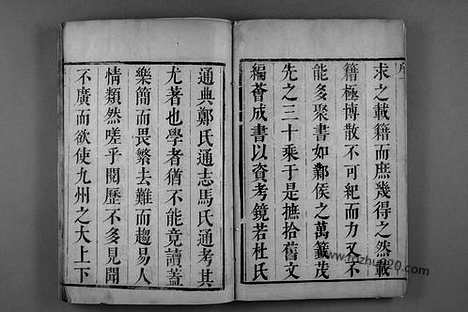 求之載籍而庶幾得之然載
籍極博散不可紀而力又不
能多聚書如鄴侯之萬籤茂
先之三十乘于是摭拾舊文
編薈成書以資考鏡若杜氏
通典鄭氏通志馬氏通考其
尤著也學者猶不能竟讀蓋
樂簡而畏繁去難而趨易人
情類然嗟乎閱歷不多見聞
不廣而欲使九州之大上下